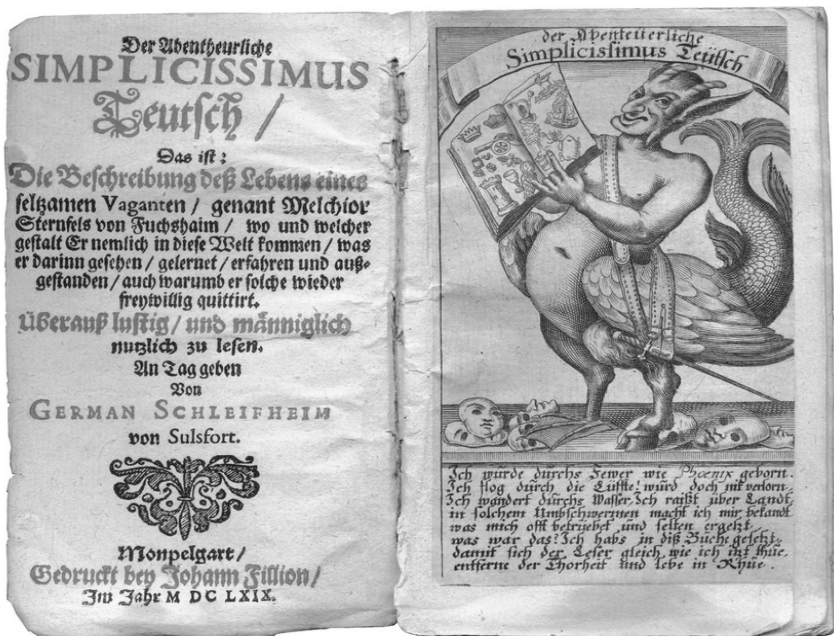 Der Abentheurliche
SIMPLICISSIMUS
Teutsch /
Das ist:
Die Beschreibung deß Lebens eines
seltzamen Vaganten / genant Melchior
Sternfels von Fuchshaim / wo und welcher
gestalt Er nemlich in diese Welt kommen / was
er darinn gesehen / gelernet / erfahren und auß-
gestanden / auch warumb er solche wieder
freywillig quittirt.
Überauß lustig / und männiglich
nutzlich zu lesen.
An Tag geben
Von
GERMAN SCHLEIFHEIM
von Sulsfort.
Monpelgart /
Gedruckt bey Johann Fillion /
Im Jahr M DC LXIX.
der Abenteuerliche
Simplicissimus Teütsch
Ich wurde durchs Fewer wie Phœnix geborn.
Ich flog durch die Lüffte! wurd doch nit verlorn.
Ich wandert durchs Wasser, Ich raißt über Landt,
in solchem Umbschwermen macht ich mir bekandt
was mich offt betrüebet und selten ergetzt,
was war das? Ich habs in diß Buche gesetzt,
damit sich der Leser gleich, wie ich itzt thue,
entferne der Thorheit und lebe in Rhue.